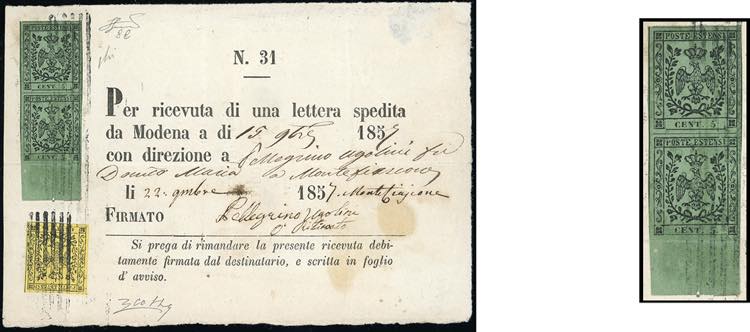 N. 31
Per ricevuta di una lettera spedita
da Modena a di 15 9bre 1857
con direzione a Pellegrino Ugolini fu
Maria a Montefiascone
li 22 9mbre 1857. Montefiascone
FIRMATO Pellegrino Ugolini
Si prega di rimandare la presente ricevuta debi-
tamente firmata dal destinatario, e scritta in foglio
d' avviso.
POSTE ESTENSI
CENT. 5
POSTE ESTENSI
CENT. 5
POSTE ESTENSI
CENT. 5
POSTE ESTENSI
CENT. 5